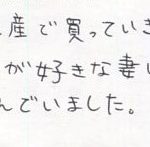 産で買っていき
が好きな妻い
んでいました。